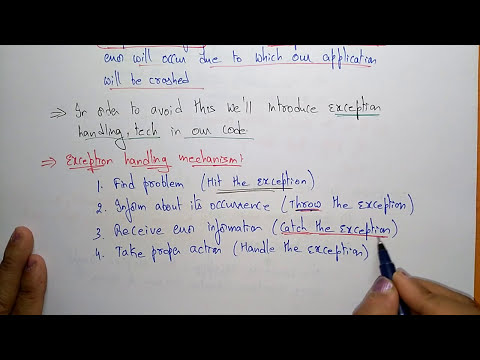 error will occur due to which our application
will be crashed
⇒ In order to avoid this we'll introduce exception
handling tech in our code
⇒ Exception handling mechanism:
1. Find problem (Hit the exception)
2. Inform about its occurrence (Throw the exception)
3. Receive error information (Catch the exception)
4. Take proper action (Handle the exception)